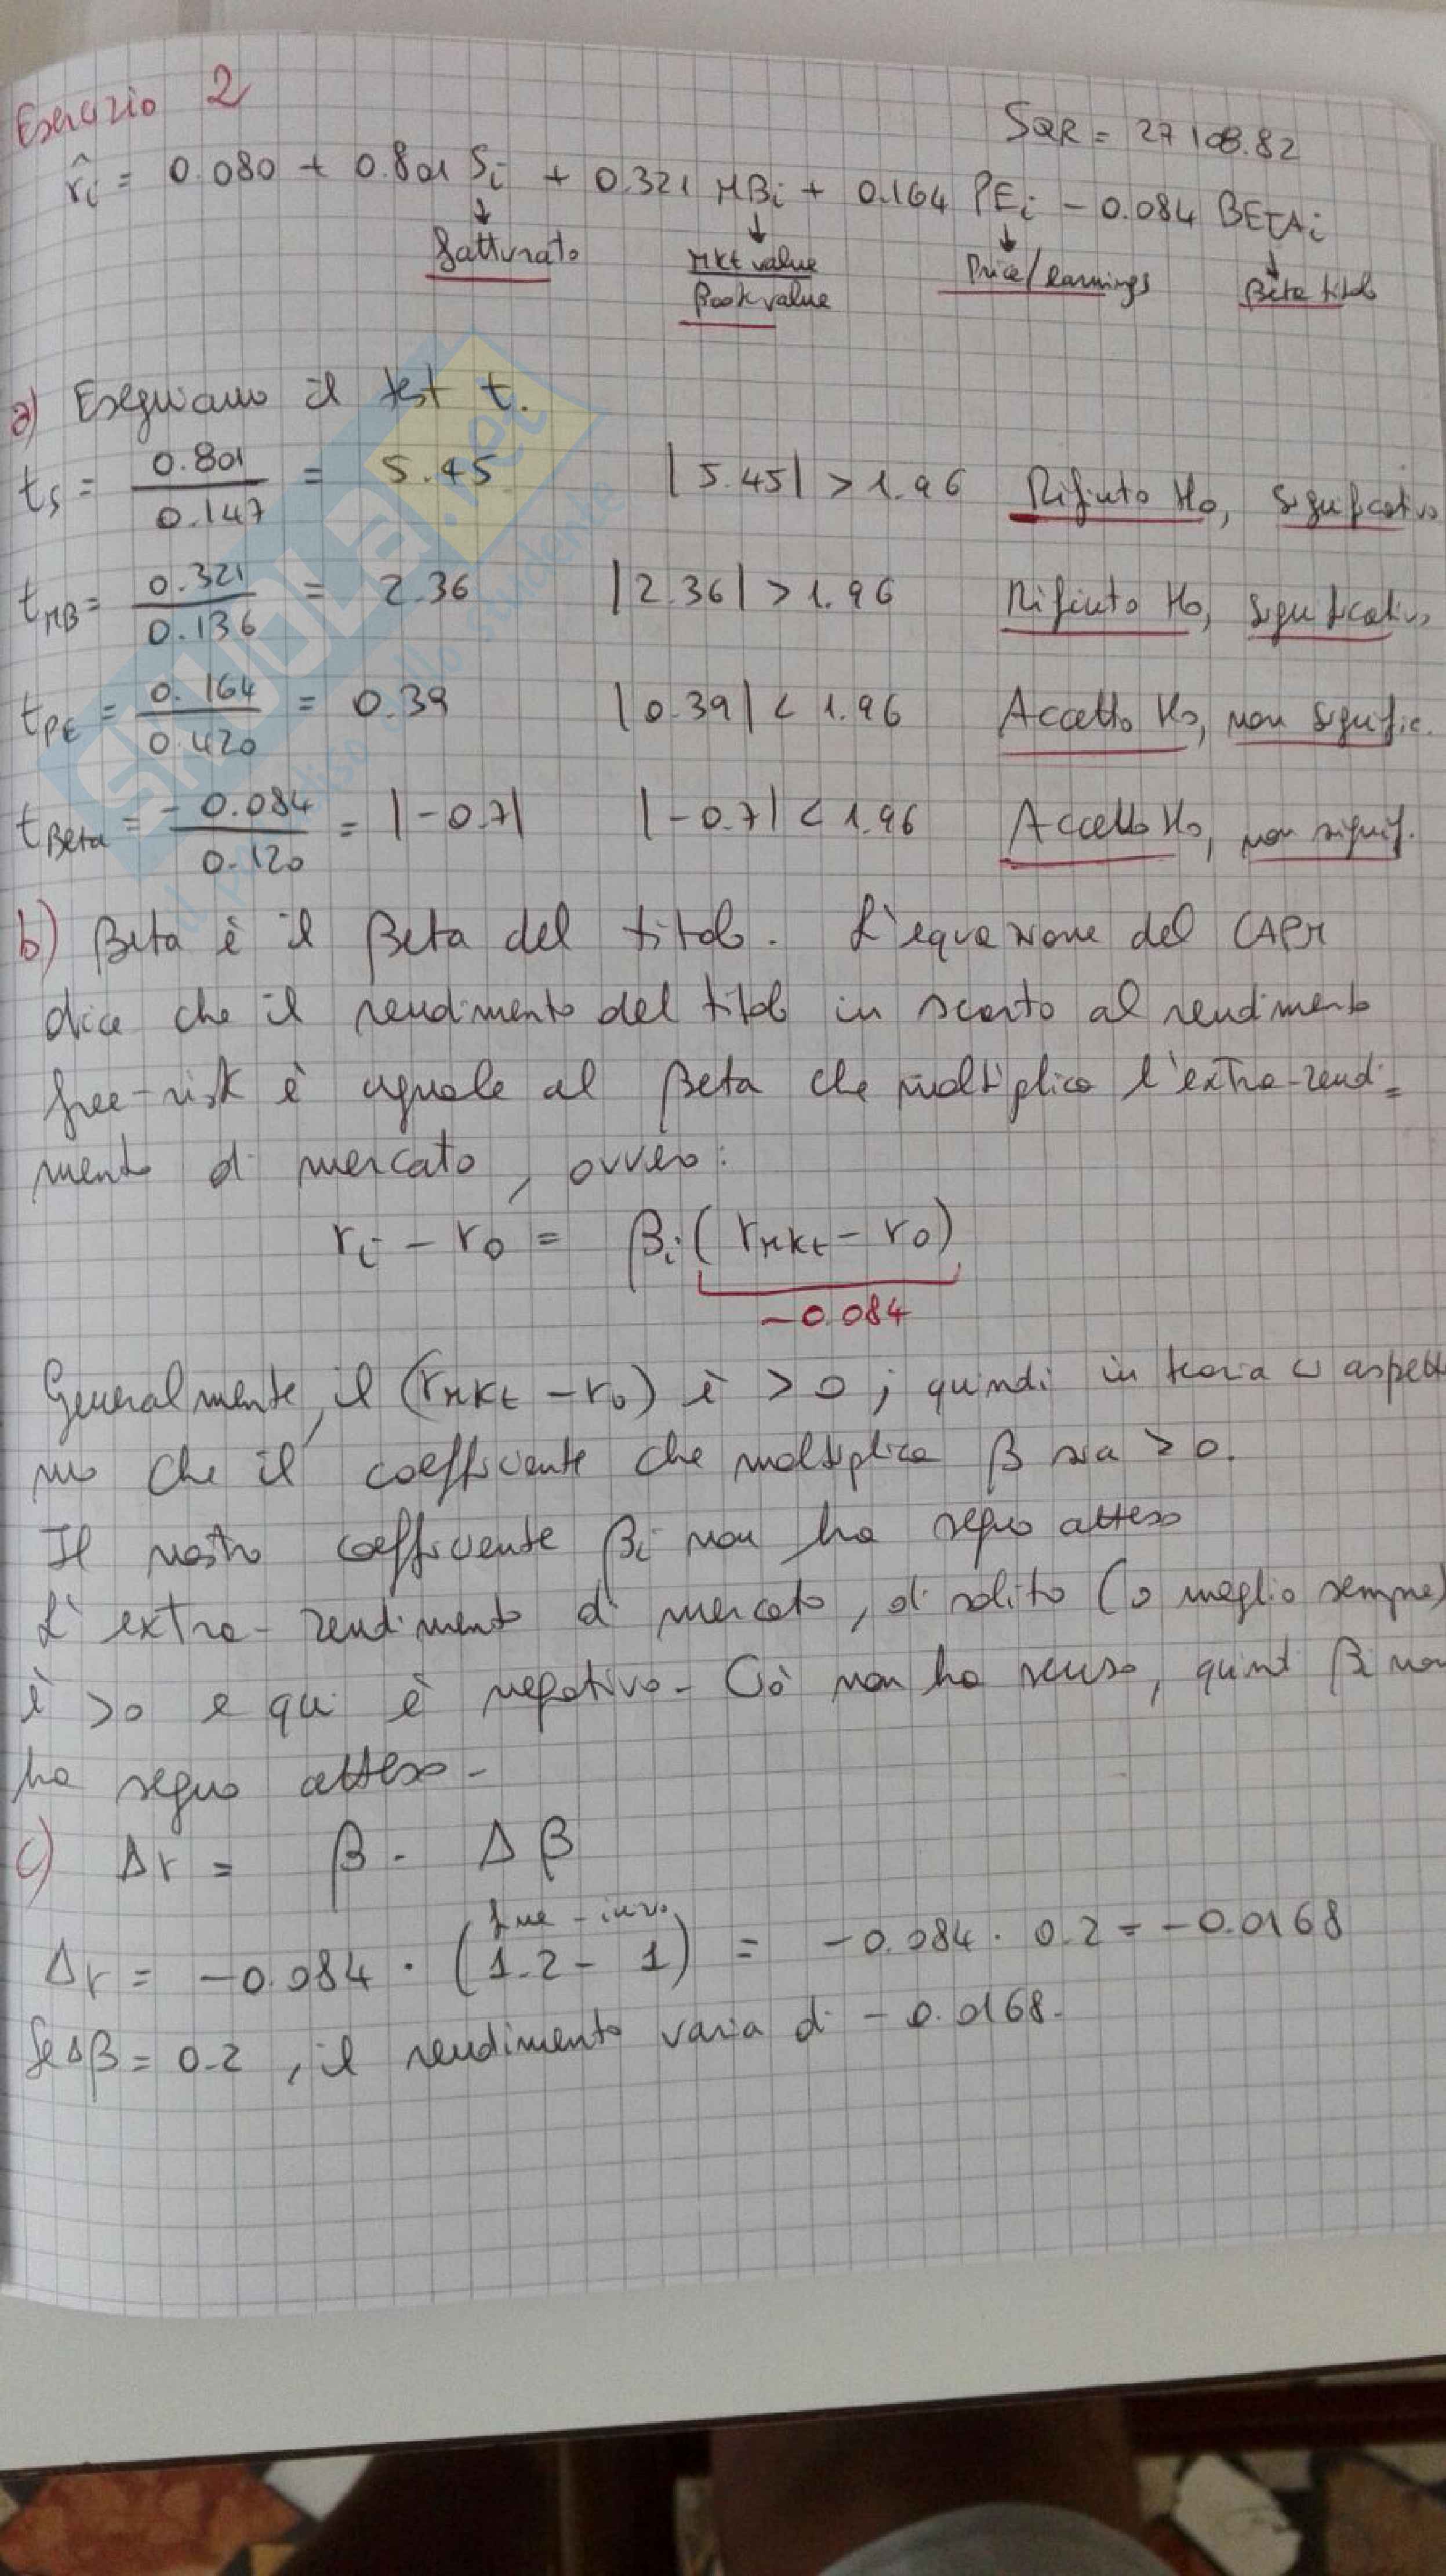 Esercizio 2
SQR = 27108.82
r̂i = 0.080 + 0.801 Si + 0.321 MBi + 0.164 PEi - 0.084 BETAi
↓ ↓ ↓ ↓
fatturato Mkt value Price/earnings Beta titolo
Book value
a) Eseguiamo il test t.
tS = 0.801 / 0.147 = 5.45 |5.45| > 1.96 Rifiuto H0, significativo
tMB = 0.321 / 0.136 = 2.36 |2.36| > 1.96 Rifiuto H0, significativo
tPE = 0.164 / 0.420 = 0.39 |0.39| < 1.96 Accetto H0, non signific.
tBeta = -0.084 / 0.120 = |-0.7| |-0.7| < 1.96 Accetto H0, non signif.
b) Beta è il Beta del titolo. L'equazione del CAPM
dice che il rendimento del titolo in scarto al rendimento
free-risk è uguale al Beta che moltiplica l'extra-rendi=
mento di mercato, ovvero:
ri - r0 = βi (rMkt - r0)
-0.084
Generalmente, il (rMkt - r0) è > 0; quindi in teoria ci aspettia
mo che il coefficiente che moltiplica β sia > 0.
Il nostro coefficiente βi non ha segno atteso
L'extra-rendimento di mercato, di solito (o meglio sempre)
è > 0 e qui è negativo. Ciò non ha senso, quindi βi non
ha segno atteso.
c) Δr = β · Δβ
fine - iniz.
Δr = -0.084 · (1.2 - 1) = -0.084 · 0.2 = -0.0168
Se Δβ = 0.2, il rendimento varia di -0.0168.
SKUOLA.net
il paradiso dello studente